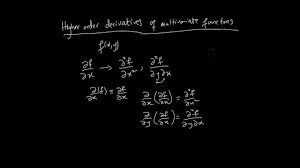 Higher order derivatives of multivariate functions
f(x,y)
∂f/∂x → ∂²f/∂x², ∂²f/∂y∂x
∂/∂x (f) = ∂f/∂x   ∂/∂x (∂f/∂x) = ∂²f/∂x²
∂/∂y (∂f/∂x) = ∂²f/∂y∂x